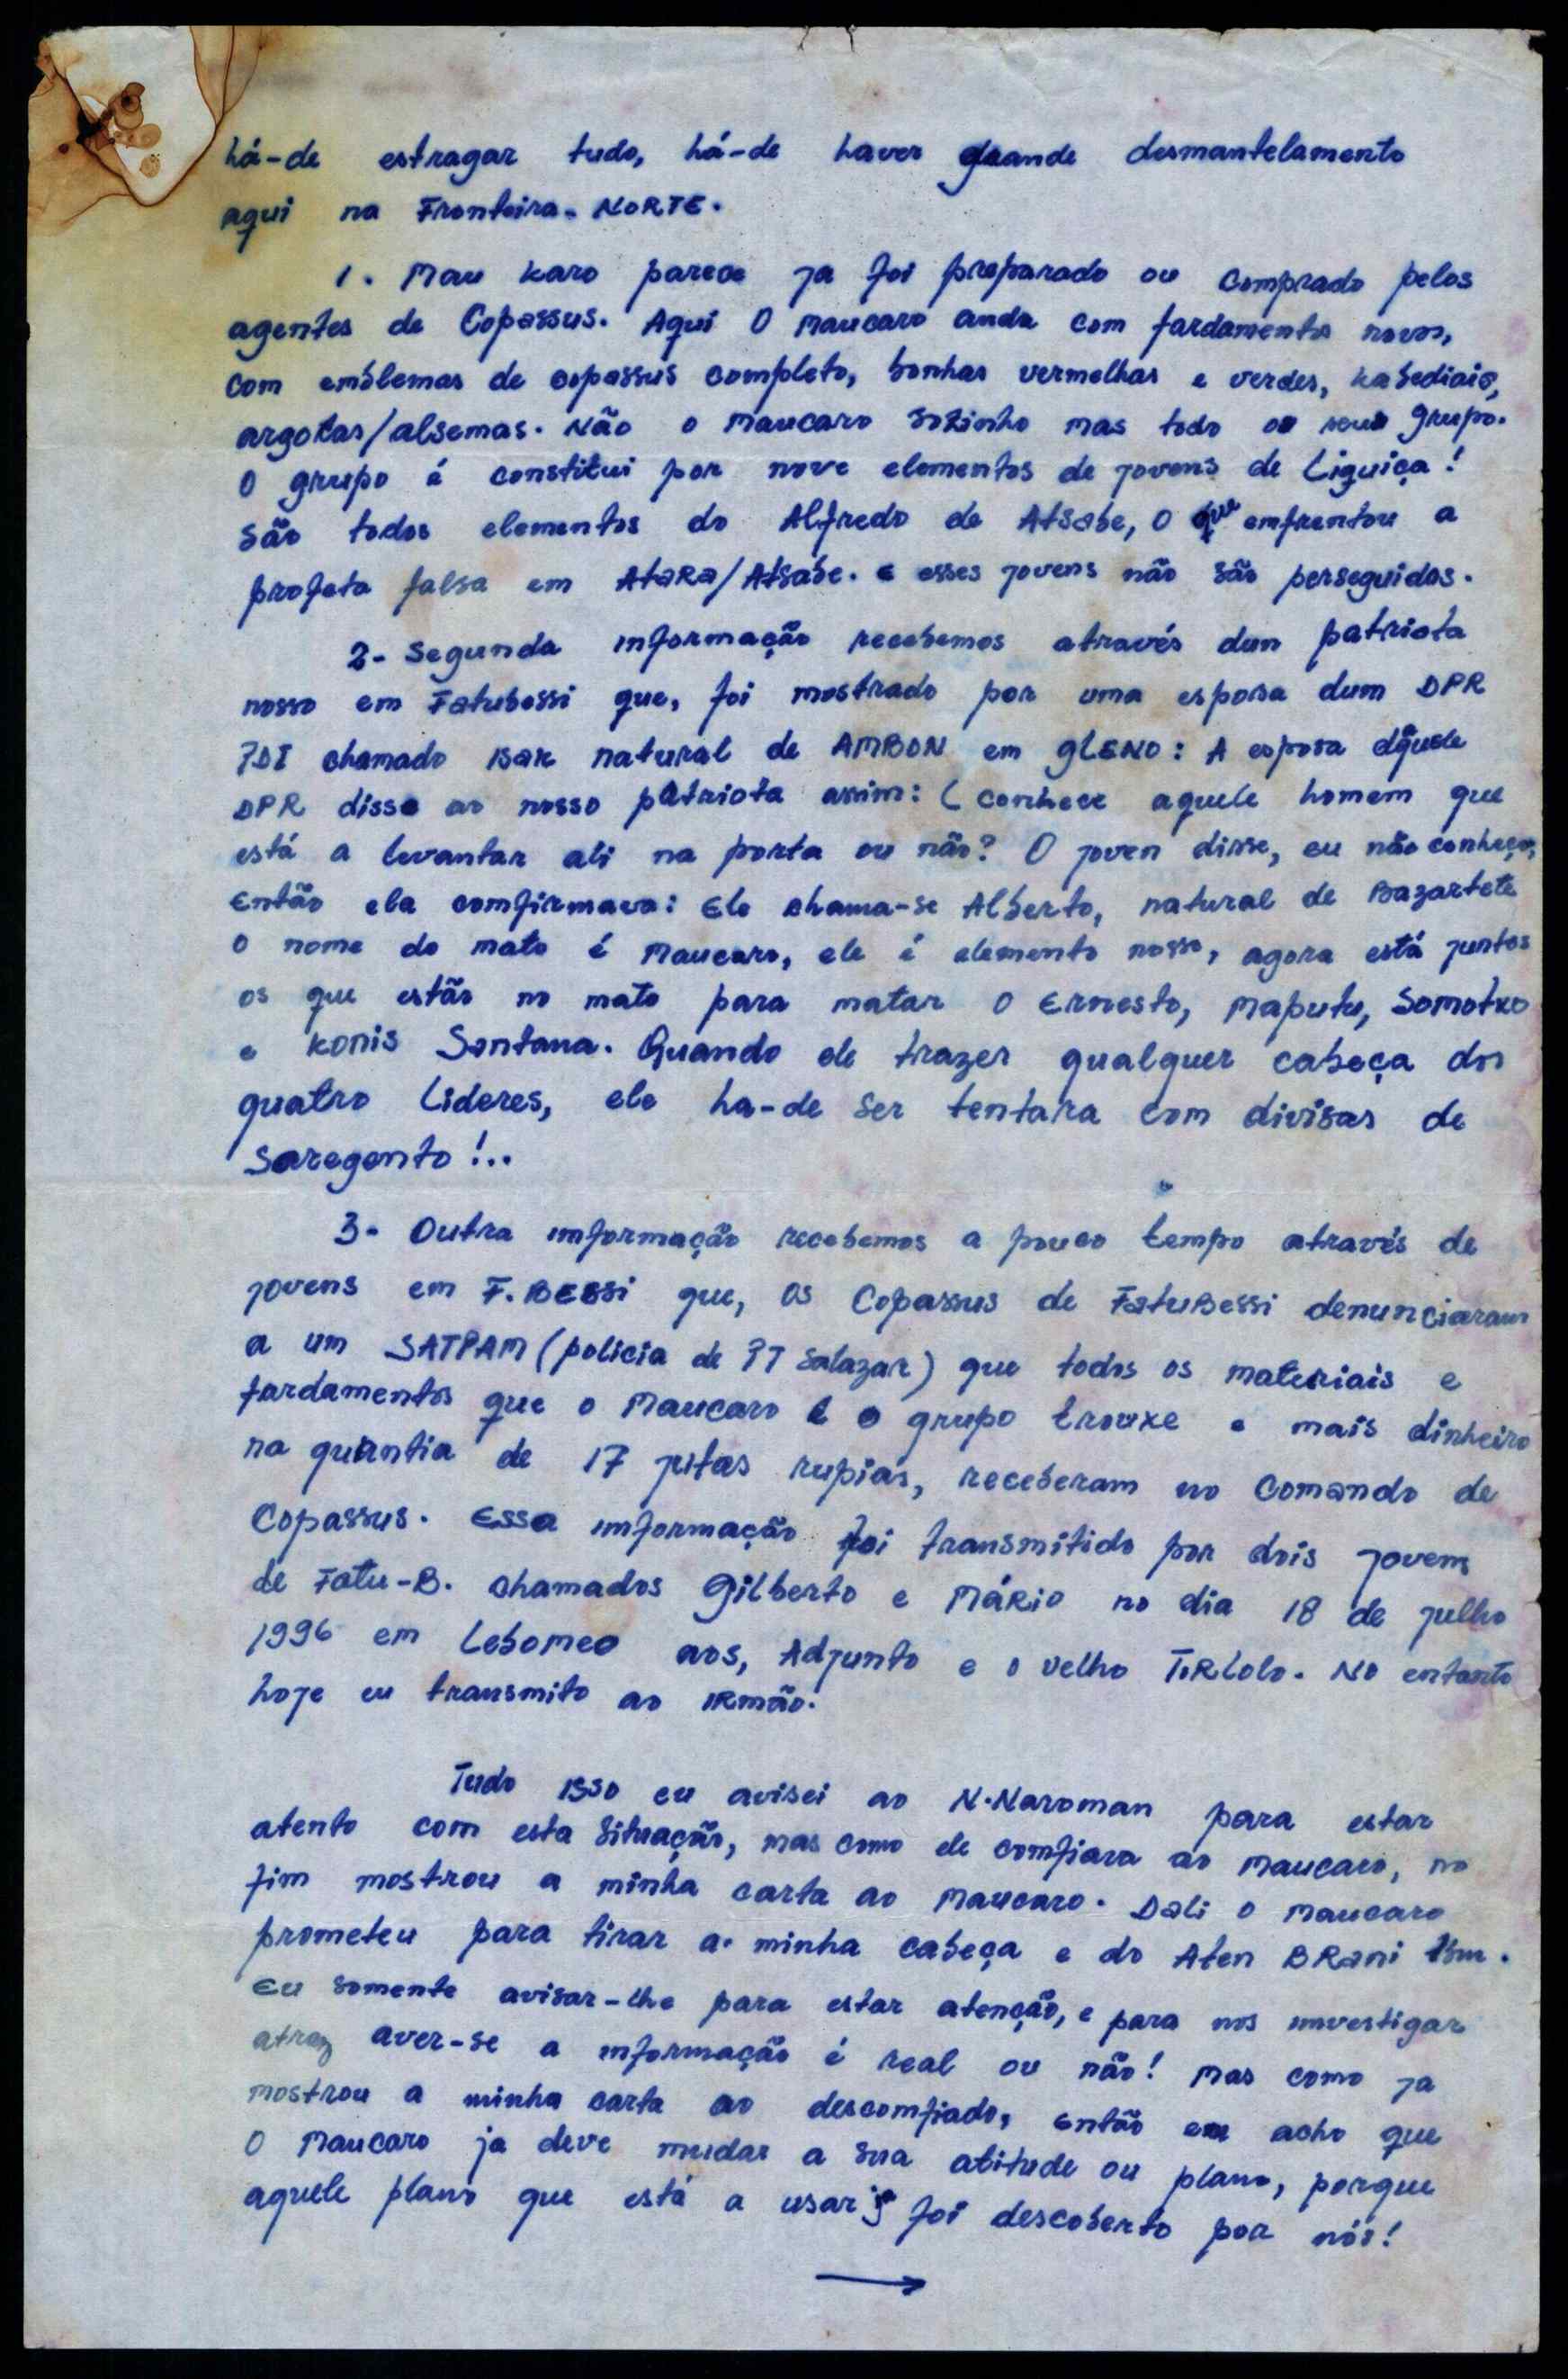 há-de estragar tudo, há-de haver grande desmantelamento
aqui na Fronteira-NORTE.
1. Mau karo parece ja foi preparado ou comprado pelos
agentes de Copassus. Aqui O maucaro anda com fardamentos novos,
com emblemas de copassus completo, bonhas vermelhas e verdes, kabediais,
argolas/alsemas. Não o maucaro sozinho mas todo o seu grupo.
O grupo é constitui por nove elementos de jovens de Liquiça!
são todos elementos do Alfredo de Atsabe, o que emfrentou a
profeta falsa em AtaRa/Atsabe. e esses jovens não são perseguidos.
2- Segunda informação recebemos através dum patriota
nosso em Fatubessi que, foi mostrado por uma esposa dum DPR
chamado natural de AMBON em gLENO: A esposa dquele
DPR disse ao nosso patriota assim: ( conhece aquele homem que
está a levantar ali na porta ou não? O joven disse, eu não conheço,
Então ela comfirmava: Ele chama-se Alberto, natural de Bazartete
o nome do mato é maucaro, ele é elemento nosso, agora está juntos
os que estão no mato para matar o Ernesto, maputu, Somotxo
e konis Santana. Quando ele trazer qualquer cabeça dos
quatro Lideres, ele ha-de ser tentara com divisas de
Saregento!..
3- Outra imformação recebemos a pouco tempo através de
jovens em F. BESSi que, os Copassus de FatuBessi denunciaram
a um SATPAM (policia de PT Salazar) que todos os materiais e
fardamentos que o maucaro e o grupo trouxe e mais dinheiro
na quantia de 17 jutas rupias, receberam no Comando de
Copassus. Essa imformação foi transmitido por dois jovens
de Fatu-B. chamados Gilberto e MáRio no dia 18 de julho
1996 em Lebomeo aos, Adjunto e o velho TORLolo. No entanto
hoje eu transmito ao IRmão.
Tudo isso eu avisei ao N.Naroman para estar
atento com esta Situação, mas como ele comfiava ao maucaro, no
fim mostrou a minha carta ao maucaro. Dali o maucaro
prometeu para tirar a minha cabeça e do Aten BRani
Eu somente avisar-lhe para estar atenção, e para nos investigar
atraz aver-se a imformação é real ou não! mas como ja
mostrou a minha carta ao descomfiado, então eu acho que
O maucaro ja deve mudar a sua atitude ou plano, porque
aquele plano que está a usar ja foi descoberto por nós!